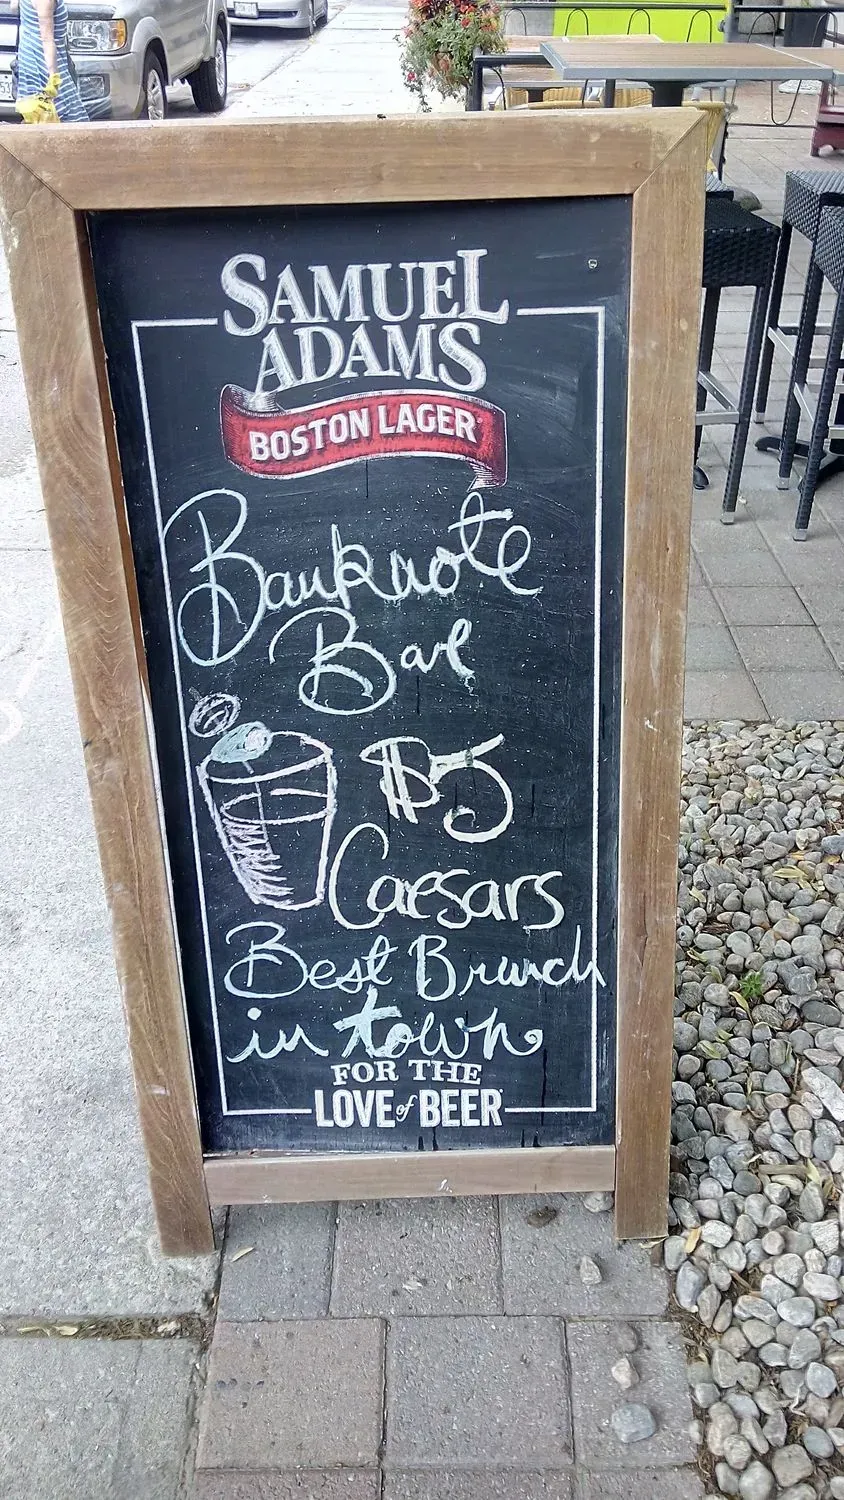 SAMUEL
ADAMS
BOSTON LAGER
Banknote
Bar
$5
Caesars
Best Brunch
in town
FOR THE
LOVE of BEER